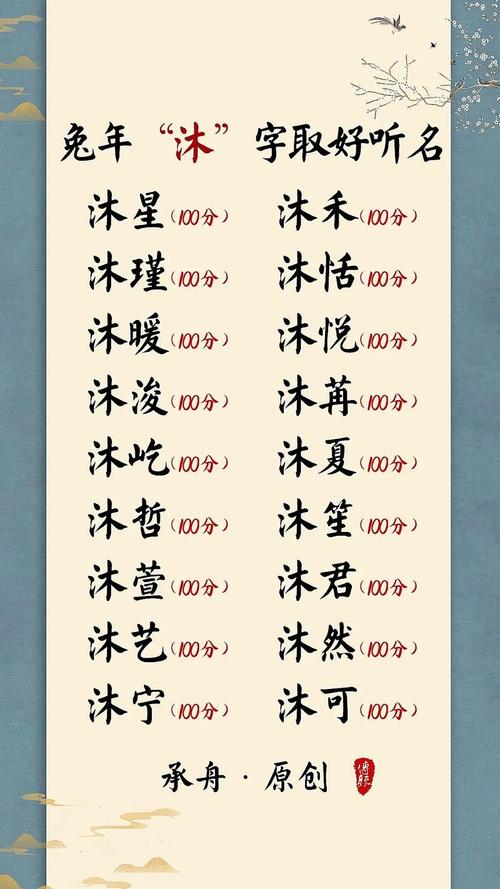 兔年“沐”字取好听名
沐星(100分) 沐禾(100分)
沐瑾(100分) 沐恬(100分)
沐暖(100分) 沐悦(100分)
沐浚(100分) 沐苒(100分)
沐屹(100分) 沐夏(100分)
沐哲(100分) 沐笙(100分)
沐萱(100分) 沐君(100分)
沐艺(100分) 沐然(100分)
沐宁(100分) 沐可(100分)
承舟·原创